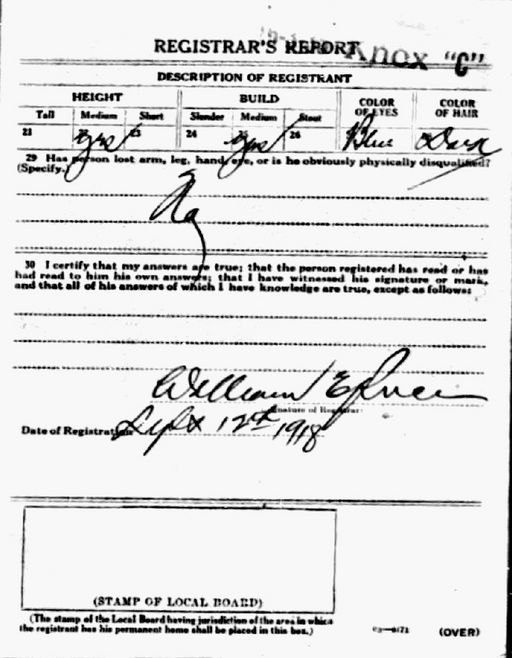 REGISTRAR'S REPORT Knox "C"
DESCRIPTION OF REGISTRANT
HEIGHT BUILD COLOR OF EYES COLOR OF HAIR
Tall Medium Short Slender Medium Stout
21 yes 23 24 yes 26 Blue Dark
29 Has person lost arm, leg, hand, eye, or is he obviously physically disqualified?
(Specify.)
No
30 I certify that my answers are true; that the person registered has read or has
had read to him his own answers; that I have witnessed his signature or mark,
and that all of his answers of which I have knowledge are true, except as follows:
William E
Signature of Registrar
Date of Registration Sept 12th 1918
(STAMP OF LOCAL BOARD)
(The stamp of the Local Board having jurisdiction of the area in which
the registrant has his permanent home shall be placed in this box.)
(OVER)